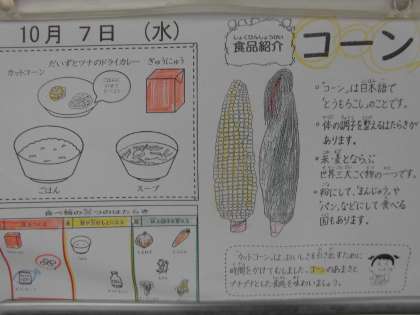 10月 7日 (水)
だいずとツナのドライカレー
ぎゅうにゅう
カットコーン
ごはん
スープ
食べ物の3つのはたらき
しょくひんしょうかい
食品紹介
コーン
・「コーン」は日本語で
「とうもろこし」のことです。
・体の調子を整えるはたらきが
あります。
・米・麦とならぶ
世界三大こく物の一つです。
・粉にして、「まんじゅう」や
「パン」などにして食べる
国もあります。
カットコーンは、おいしさを引き出すために
時間をかけてむしました。コーンのあまさと
プチプチとした食感を味わいましょう。